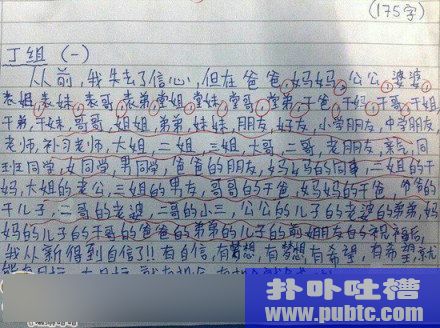 (175字)
丁组 (一)
从前,我失去了信心,但在爸爸,妈妈,公公,婆婆,
表姐,表妹,表哥,表弟,堂姐,堂妹,堂哥,堂弟,干爸,干妈,干哥,干姐,
干弟,干妹,哥哥,姐姐,弟弟,妹妹,朋友,好友,小学朋友,中学朋友,
老师,补习老师,大姐,二姐,三姐,大哥,二哥,老朋友,亲戚,同
班同学,女同学,男同学,爸爸的朋友,妈妈的同事,二姐的干
妈,大姐的老公,三姐的男友,哥哥的干爸,妈妈的干爸,爸爸的
干儿子,二哥的老婆,二哥的小三,公公的儿子的老婆的弟弟,妈
妈的儿子的干哥的爸爸的弟弟的儿子的前姐友的祝福后,
我从新得到自信了!!有自信,有梦想,有梦想,有希望,有希望,就
扑卟吐槽
www.pubtc.com